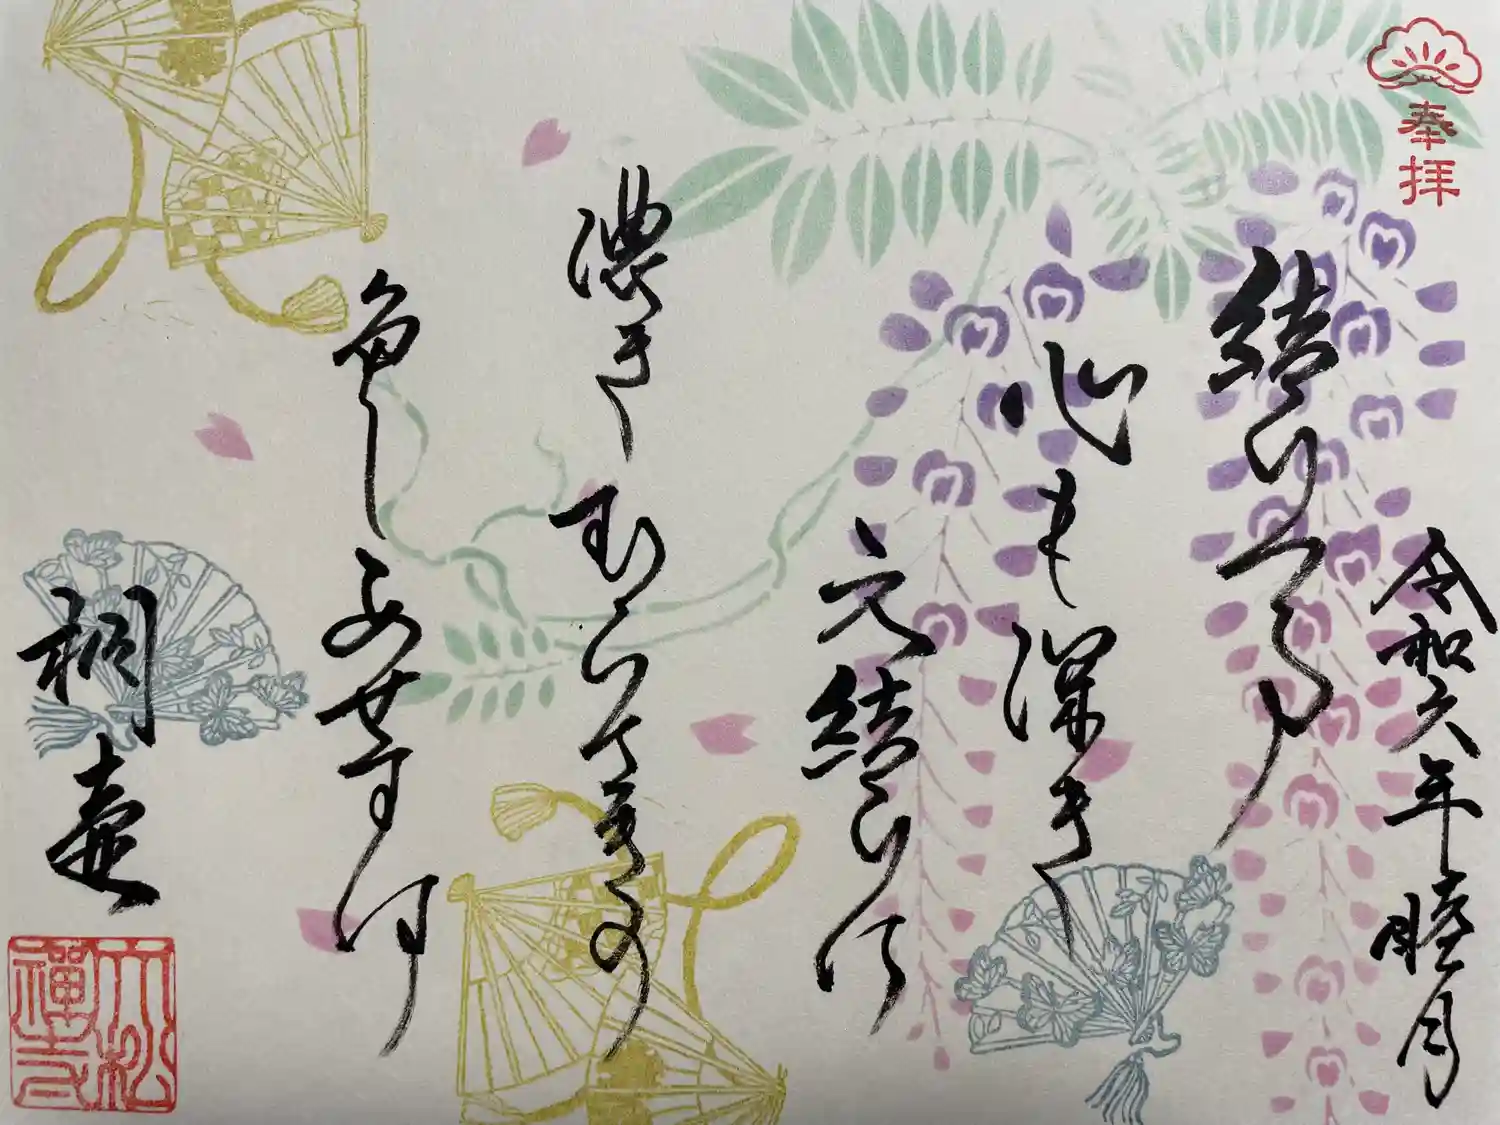 奉拝
令和六年睦月
結びつる
心も深き
元結ひに
濃きむらさきの
色しあせずは
桐壷
大松
禅寺